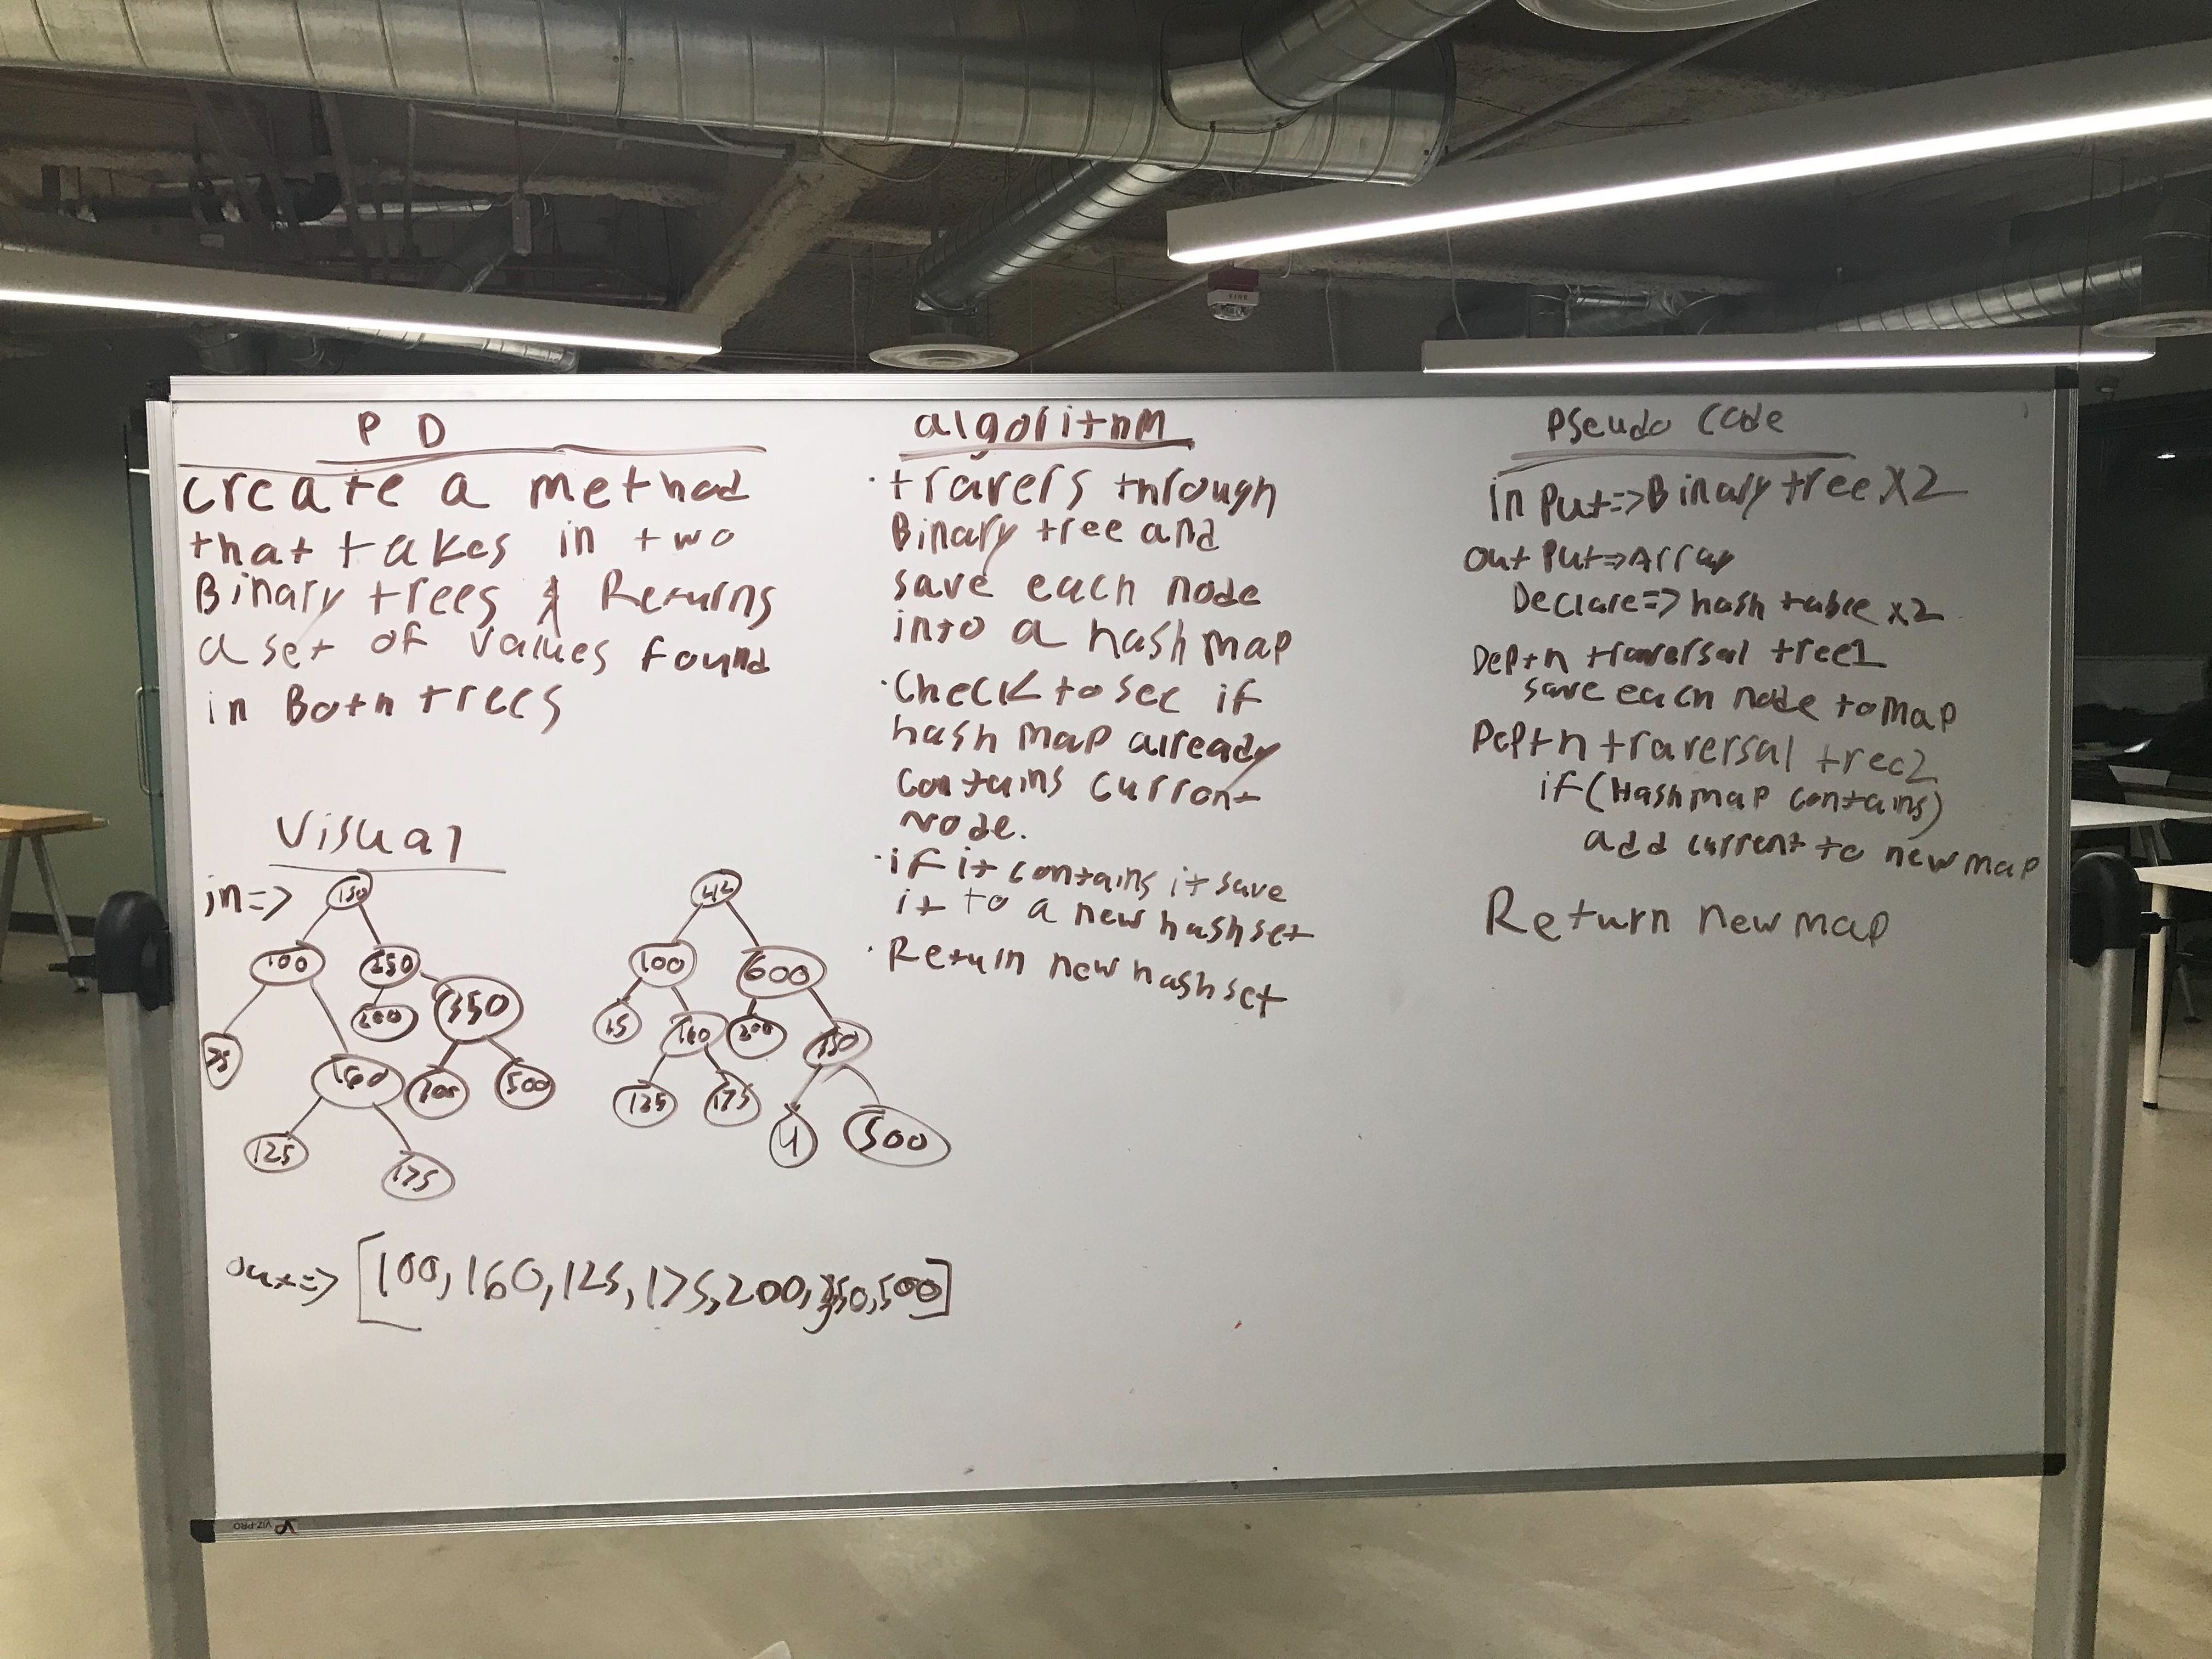 P D
create a method
that takes in two
Binary trees & Returns
a set of values found
in Both trees
Visual
in=>
150
100
250
75
200
350
160
300
500
125
175
42
100
600
15
160
200
350
125
175
4
500
out=> [100, 160, 125, 175, 200, 350, 500]
algorithm
· travers through
Binary tree and
save each node
into a hash map
· Check to see if
hash map already
contains current
node.
· if it contains it save
it to a new hashset
· Return new hashset
Pseudo Code
in Put=>Binary tree X2
Out Put=>Array
Declare=> hash table x2
Depth traversal tree1
save each node to map
Depth traversal tree2
if(Hashmap contains)
add current to new map
Return new map
VIZ-PRO
FIRE